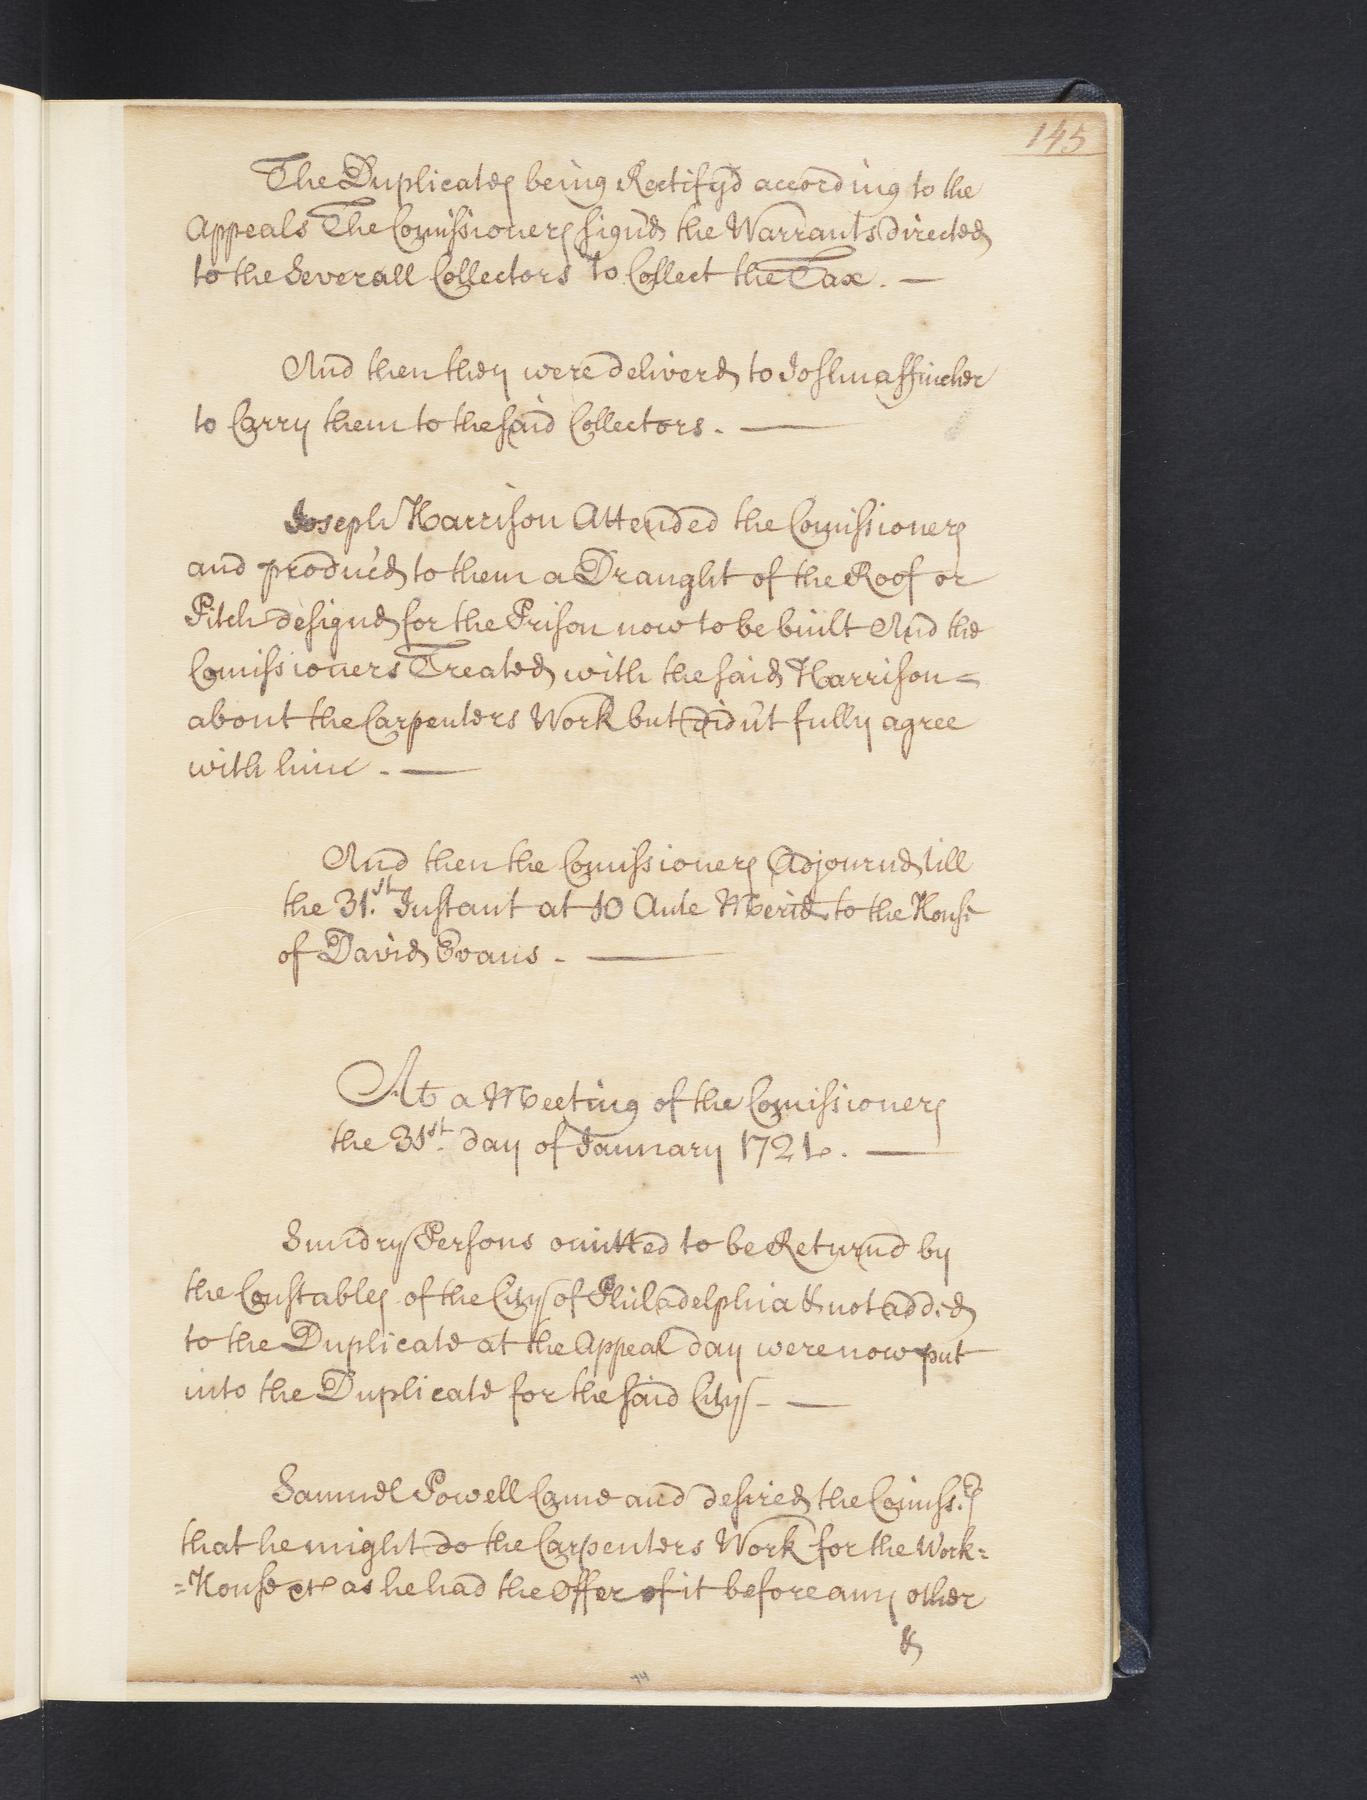 145
The Duplicates being Rectifyd according to the
Appeals The Comissioners signd the Warrants directed
to the Severall Collectors to Collect the Tax. —
And then they were deliverd to Joshua ffincher
to Carry them to the said Collectors. —
Joseph Harrison Attended the Comissioners
and produc'd to them a Draught of the Roof or
Pitch designd for the Prison now to be built And the
Comissioners Treated with the said Harrison =
about the Carpenters Work but didn't fully agree
with him. —
And then the Comissioners Adjournd till
the 31.st Instant at 10 Ante Merid. to the House
of David Evans. —
At a Meeting of the Comissioners
the 31st. day of January 1721. —
Sundry Persons omitted to be Returnd by
the Constables of the City of Philadelphia & not added
to the Duplicate at the Appeal day were now put
into the Duplicate for the said City. —
Samuel Powell Came and desired the Comiss.rs
that he might do the Carpenters Work for the Work=
=House as he had the Offer of it before any other
&